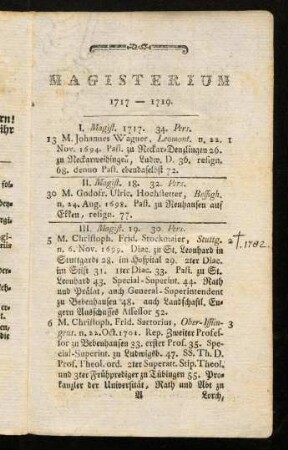 MAGISTERIUM
1717 — 1719.
I. Magist. 1717. 34. Pers.
13 M. Johannes Wagner, Leomont. n. 22. 1
Nov. 1694. Past. zu Neckar-Denzlingen 26.
zu Neckarweihingen, Ludw. D. 36. resign.
68. denuo Past. ebendaselbst 72.
II. Magist. 18. 32. Pers.
30 M. Godofr. Ulric. Hochstetter, Besigh.
n. 24. Aug. 1698. Past. zu Neuhausen auf
Ekken, resign. 77.
III. Magist. 19. 30. Pers.
5 M. Christoph. Frid. Stockmaier, Stuttg. 2 †. 1782
n. 6. Nov. 1699. Diac. zu St. Leonhard in
Stuttgardt 28. im Hospital 29. 2ter Diac.
im Stift 31. 1ter Diac. 33. Past. zu St.
Leonhard 43. Special-Superint. 44. Rath
und Prälat, auch General-Superintendent
zu Bebenhausen 48. auch Landschaftl. En-
gern Ausschusses Assessor 52.
6 M. Christoph. Frid. Sartorius, Ober-Iffin- 3
gens. n. 22. Oct. 1701. Rep. Zweiter Profes-
sor zu Bebenhausen 33. erster Prof. 35. Spe-
cial-Superint. zu Ludwigsb. 47. SS. Th. D.
Prof. Theol. ord. 2ter Superatt. Stip. Theol.
und 3ter Frühprediger zu Tübingen 55. Pro-
kanzler der Universität, Rath und Abt zu
A Lorch,